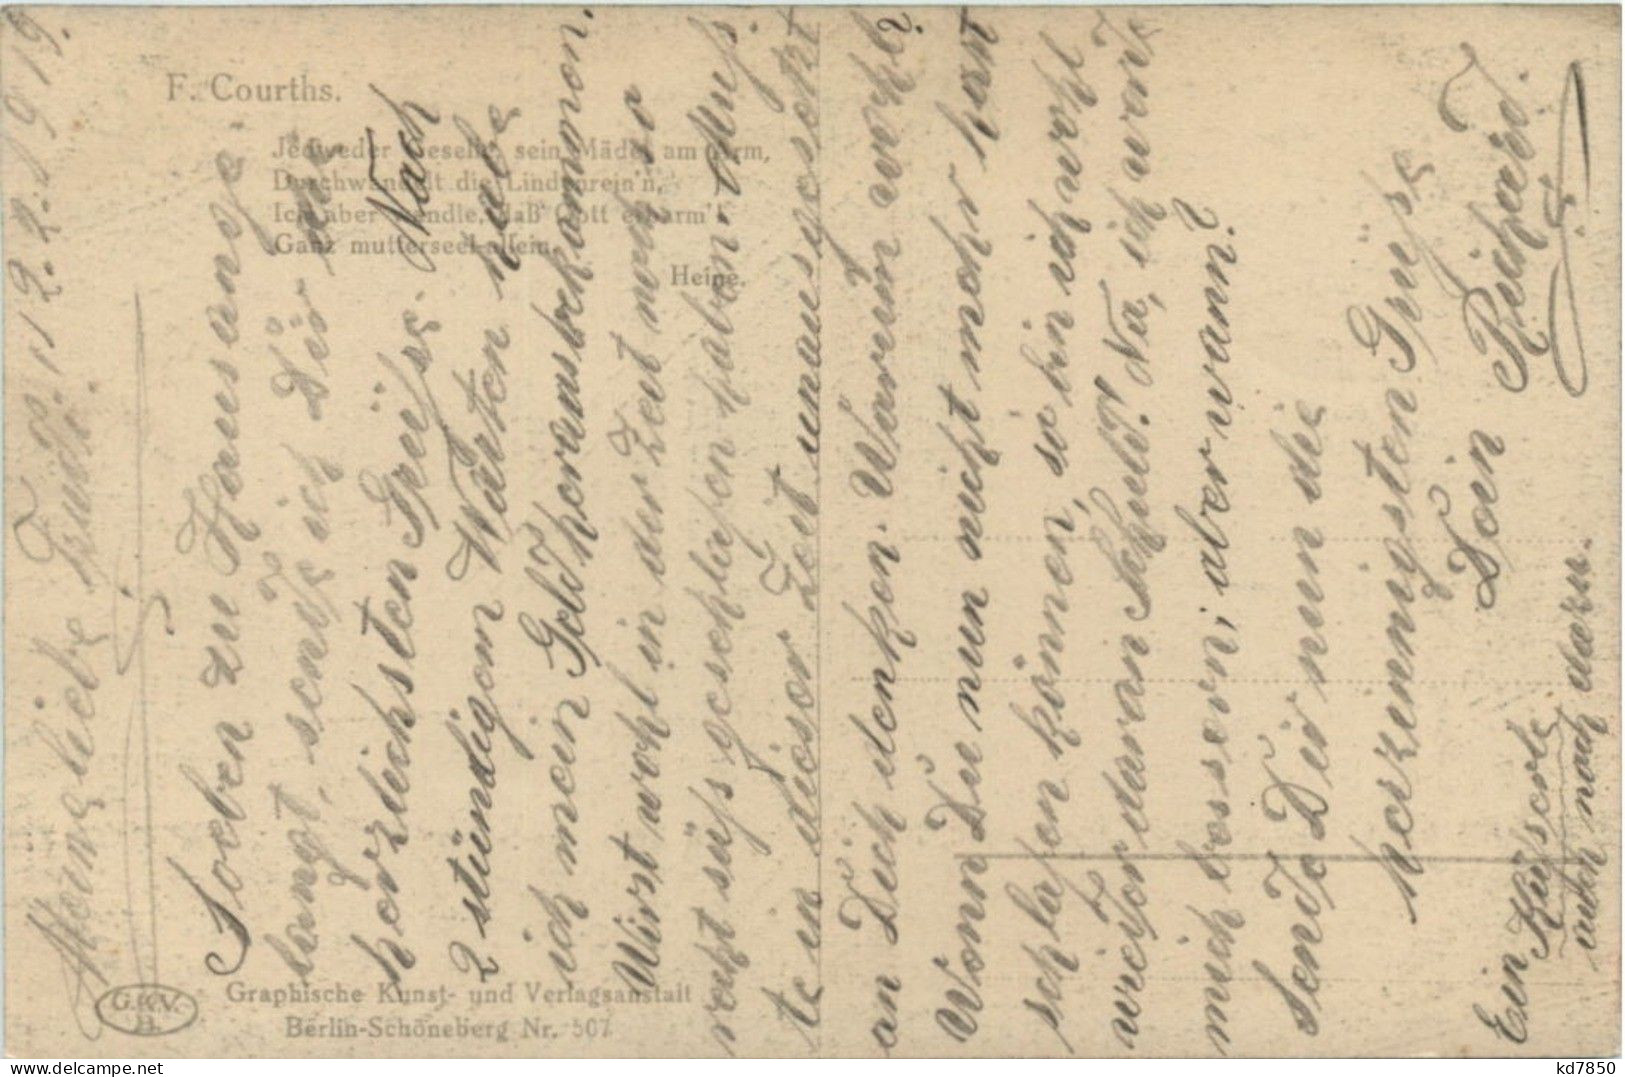 F. Courths.
Jedweder Geselle, sein Mädel am Arm,
Durchwandelt die Lindenreih'n,
Ich aber wandle, daß Gott erbarm'!
Ganz mutterseel-allein.
Heine.
G.K.V.
B.
Graphische Kunst- und Verlagsanstalt
Berlin-Schöneberg Nr. 507
12.2.1919.
Meine liebe Trude.
Soeben zu Hause ange
langt, sende ich Dir die
herzlichsten Grüße. Nach
2 stündigem Warten habe
ich mein Geld herausbekommen.
Wirst wohl in der Zeit noch so
recht süß geschlafen haben. Muß
te in dieser Zeit unausgesetzt
an Dich denken. Warum wohl?
Wenn Du nun nicht mehr hast
schlafen können, so bin ich wohl
wieder daran Schuld. Na, ich werde
mich bessern, aber wann?
Sende Dir nun die
herzinnigsten Grüße
Dein Richard.
Ein
auch noch dazu.
kd7850